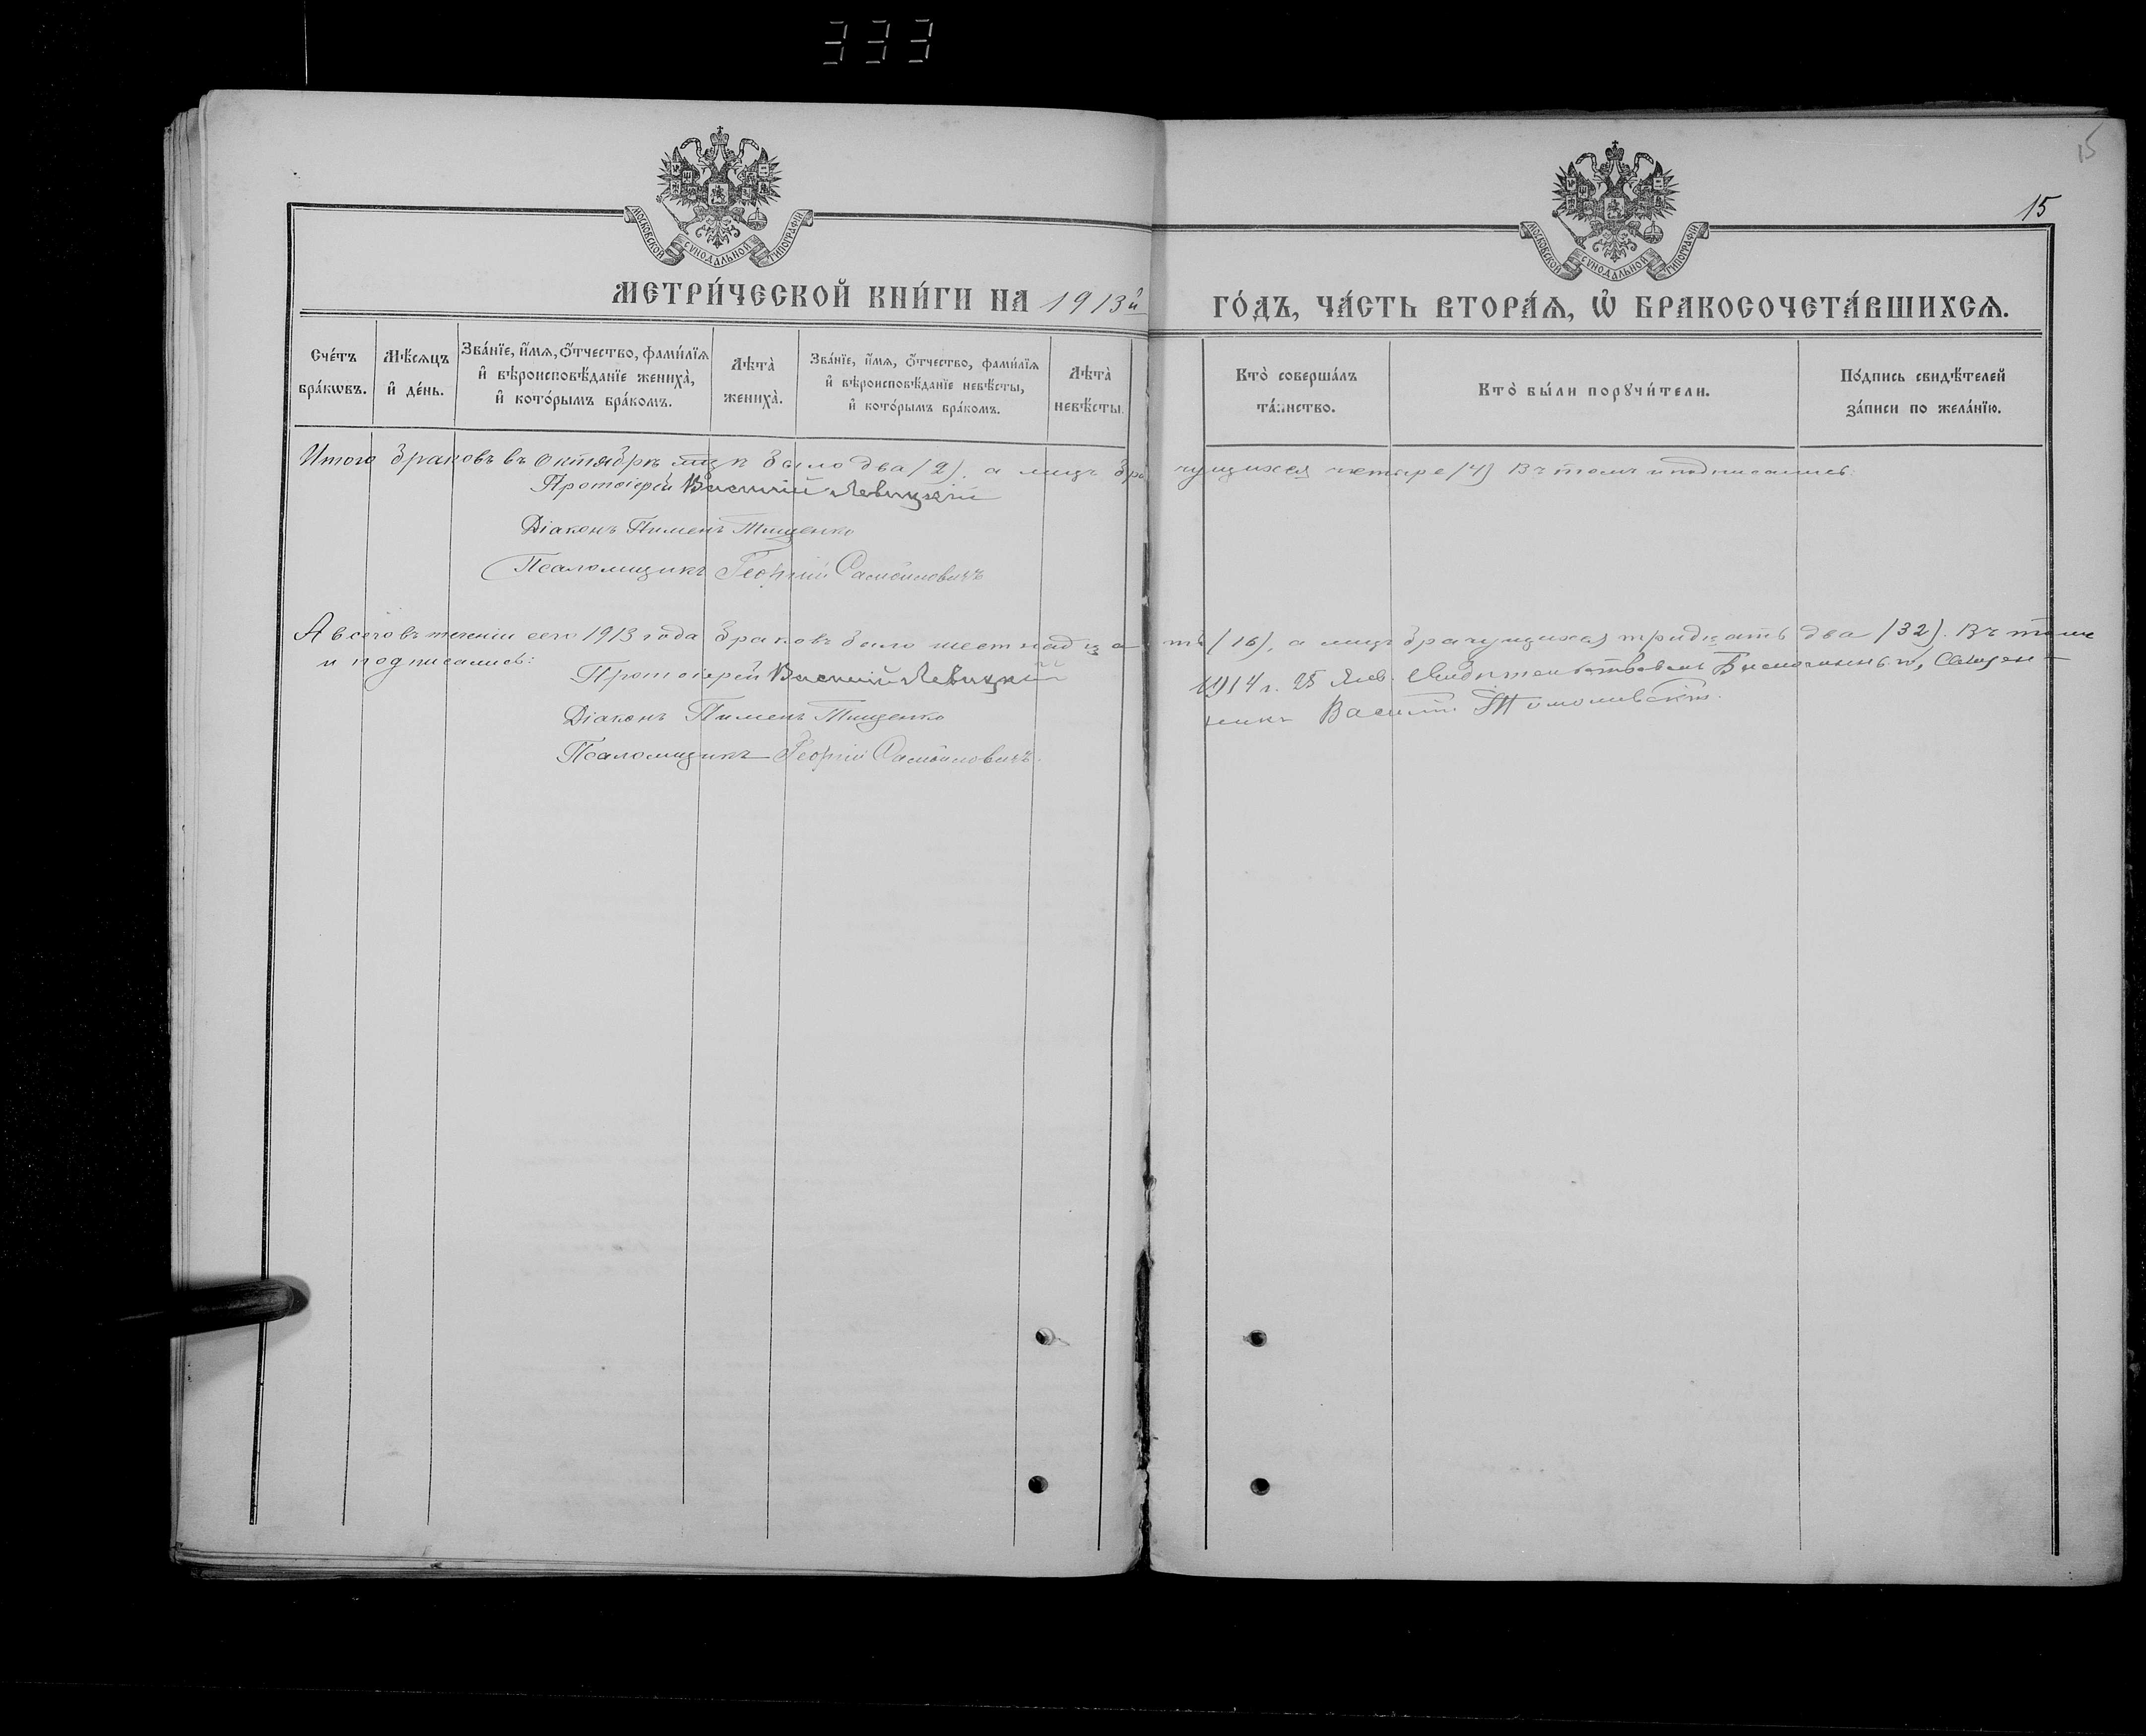 333
15
15
МОСКОВСКОЙ СѴНОДАЛЬНОЙ ТИПОГРАФІИ
МОСКОВСКОЙ СѴНОДАЛЬНОЙ ТИПОГРАФІИ
МЕТРИ́ЧЕСКОЙ КНИ́ГИ НА 1913й ГО́ДЪ, ЧА́СТЬ ВТОРА́Ѧ, Ѡ҆ БРАКОСОЧЕТА́ВШИХСѦ.
Сче́тъ бра́кѡвъ.
Мѣ́сѧцъ и҆ де́нь.
Зва́нїе, и҆́мѧ, ѻ҆́тчество, фами́лїѧ и҆ вѣроисповѣ́данїе жениха̀, и҆ кото́рымъ бра́комъ.
Лѣта̀ жениха̀.
Зва́нїе, и҆́мѧ, ѻ҆́тчество, фами́лїѧ и҆ вѣроисповѣ́данїе невѣ́сты, и҆ кото́рымъ бра́комъ.
Лѣта̀ невѣ́сты.
Кто̀ соверша́лъ та́инство.
Кто̀ бы́ли порꙋчи́тели.
По́дпись свидѣ́телей за́писи по жела́нїю.
Итого браковъ въ Октябрѣ мцѣ было два (2), а лицъ брачущихся четыре (4) Въ томъ и подписались:
Протоіерей Василій Левицкій
Діаконъ Пименъ Тищенко
Псаломщикъ Георгій Самойловичъ
А всего въ теченіи сего 1913 года браковъ было шестнадцать (16), а лицъ брачущихся тридцать два (32). Въ томъ
и подписались:
Протоіерей Василій Левицкій
Діаконъ Пименъ Тищенко
Псаломщикъ Георгій Самойловичъ.
1914 г. 25 Янв. Свидѣтельствовалъ Священ-
никъ Василій